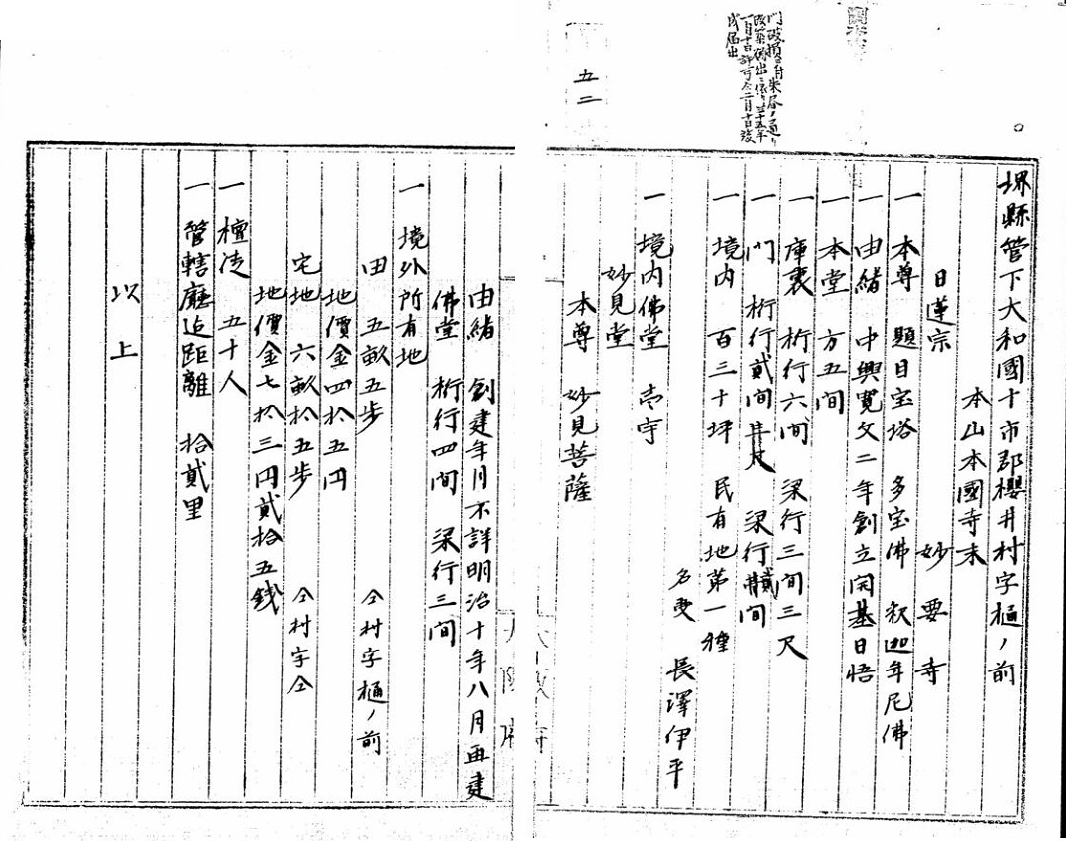 堺縣管下大和國十市郡櫻井村字樋ノ前
本山本國寺末
日蓮宗 妙要寺
一 本尊 題目宝塔 多宝佛 釈迦牟尼佛
一 由緒 中興寛文二年創立開基日悟
一 本堂 方五間
一 庫裏 桁行六間 梁行三間三尺
一 門 桁行貳間 梁行 間
一 境内 百三十坪 民有地第一種
名受 長澤伊平
一 境内佛堂 壱宇
妙見堂
本尊 妙見菩薩
由緒 創建年月不詳明治十年八月再建
佛堂 桁行四間 梁行三間
一 境外所有地
田 五畝五歩 仝村字樋ノ前
地價金四拾五円
宅地 六畝拾五歩 仝村字仝
地價金七拾三円貳拾五錢
一 檀徒 五十人
一 管轄廳迄距離 拾貳里
以上
門破損ニ付朱 ノ通リ
改築 出ニ依リ三十五年
一月 許可仝二月 日竣
成届出
五二